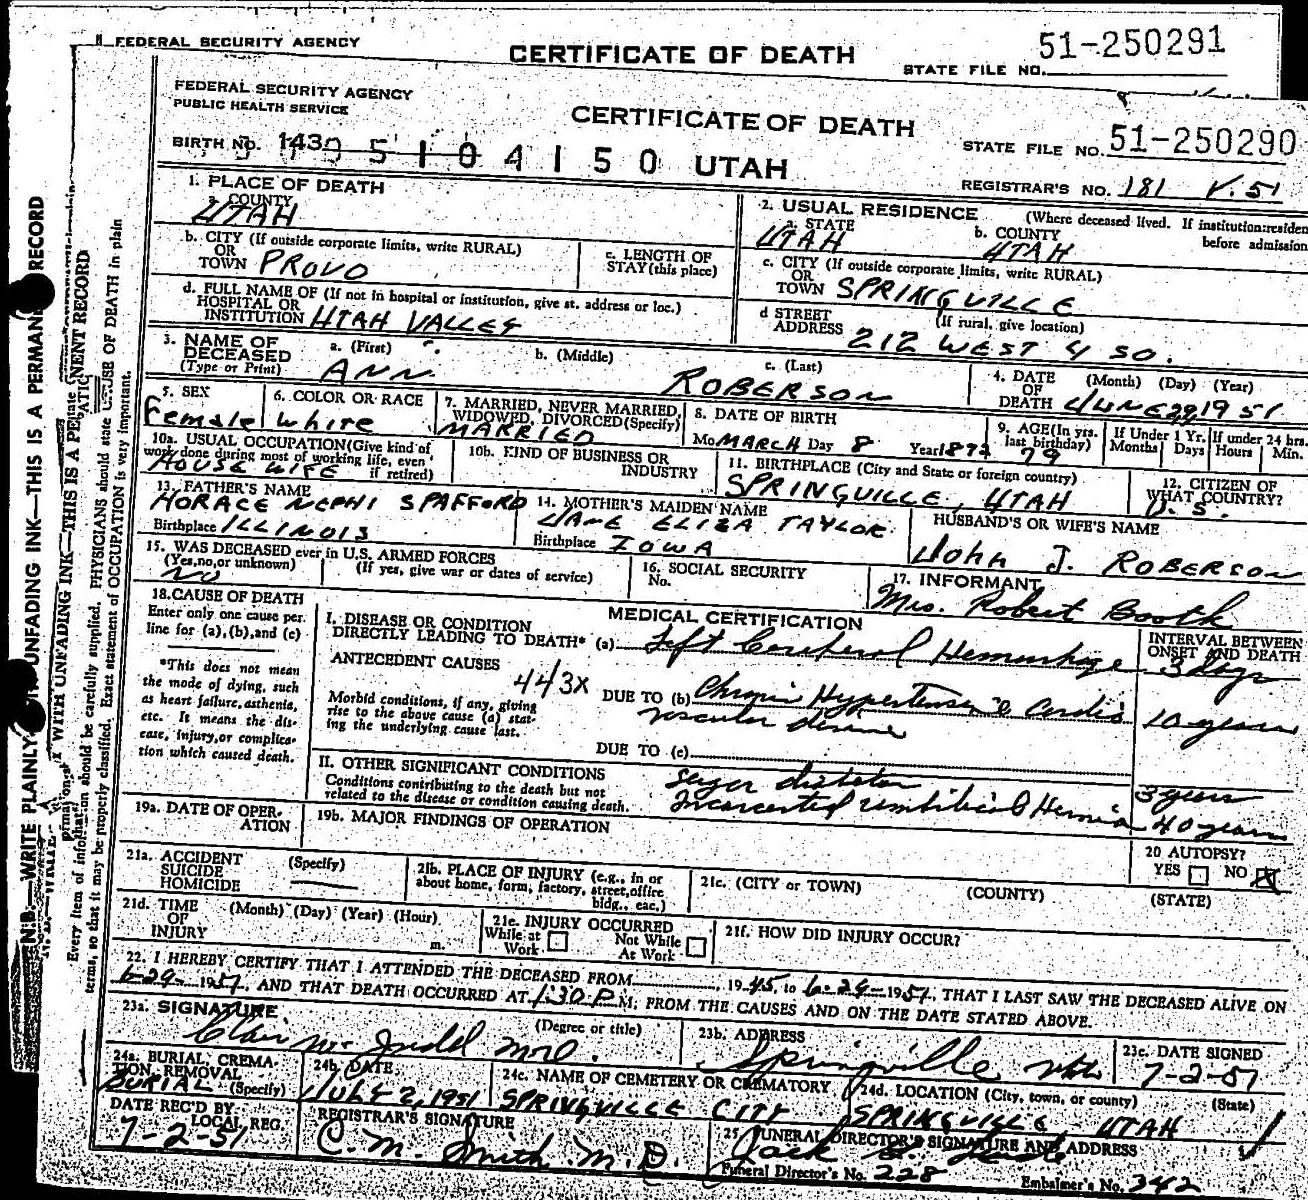 FEDERAL SECURITY AGENCY
CERTIFICATE OF DEATH
STATE FILE NO. 51-250291
FEDERAL SECURITY AGENCY
PUBLIC HEALTH SERVICE
CERTIFICATE OF DEATH
STATE FILE NO. 51-250290
BIRTH NO. 143
5 1 0 4 1 5 0 UTAH
REGISTRAR'S NO. 181 V. 51
1. PLACE OF DEATH
a. COUNTY
UTAH
2. USUAL RESIDENCE (Where deceased lived. If institution: residen
before admission
a. STATE
UTAH
b. COUNTY
UTAH
b. CITY (If outside corporate limits, write RURAL)
OR
TOWN PROVO
c. LENGTH OF
STAY (this place)
c. CITY (If outside corporate limits, write RURAL)
OR
TOWN SPRINGVILLE
d. FULL NAME OF (If not in hospital or institution, give st. address or loc.)
HOSPITAL OR
INSTITUTION UTAH VALLEY
d STREET
ADDRESS (If rural, give location)
212 WEST 4 SO.
3. NAME OF
DECEASED
(Type or Print)
a. (First)
ANN
b. (Middle)
c. (Last)
ROBERSON
4. DATE
OF
DEATH (Month) (Day) (Year)
JUNE 29, 1951
5. SEX
Female
6. COLOR OR RACE
White
7. MARRIED, NEVER MARRIED,
WIDOWED, DIVORCED (Specify)
MARRIED
8. DATE OF BIRTH
Mo MARCH Day 8 Year 1872
9. AGE (In yrs.
last birthday)
79
If Under 1 Yr.
Months Days
If under 24 hrs.
Hours Min.
10a. USUAL OCCUPATION (Give kind of
work done during most of working life, even
if retired)
HOUSE WIFE
10b. KIND OF BUSINESS OR
INDUSTRY
11. BIRTHPLACE (City and State or foreign country)
SPRINGVILLE, UTAH
12. CITIZEN OF
WHAT COUNTRY?
U.S.
13. FATHER'S NAME
HORACE NEPHI SPAFFORD
Birthplace ILLINOIS
14. MOTHER'S MAIDEN NAME
JANE ELIZA TAYLOR
Birthplace IOWA
HUSBAND'S OR WIFE'S NAME
John J. ROBERSON
15. WAS DECEASED ever in U.S. ARMED FORCES
(Yes, no, or unknown)
NO
(If yes, give war or dates of service)
16. SOCIAL SECURITY
No.
17. INFORMANT
Mrs. Robert Booth
18. CAUSE OF DEATH
Enter only one cause per.
line for (a), (b), and (c)
*This does not mean
the mode of dying, such
as heart failure, asthenia,
etc. It means the dis-
ease, injury, or complica-
tion which caused death.
MEDICAL CERTIFICATION
INTERVAL BETWEEN
ONSET AND DEATH
I. DISEASE OR CONDITION
DIRECTLY LEADING TO DEATH* (a) Left Cerebral Hemorrhage 3 days
ANTECEDENT CAUSES
443X
Morbid conditions, if any, giving
rise to the above cause (a) stat-
ing the underlying cause last.
DUE TO (b) Chronic Hypertensive Cardio 10 years
vascular disease
DUE TO (c)
II. OTHER SIGNIFICANT CONDITIONS
Conditions contributing to the death but not
related to the disease or condition causing death.
sugar diabetes 3 years
Incarcerated umbilical Hernia 40 years
19a. DATE OF OPER-
ATION
19b. MAJOR FINDINGS OF OPERATION
20 AUTOPSY?
YES NO X
21a. ACCIDENT
SUICIDE
HOMICIDE
(Specify)
21b. PLACE OF INJURY (e.g., in or
about home, form, factory, street, office
bldg., eac.)
21c. (CITY or TOWN) (COUNTY) (STATE)
21d. TIME
OF
INJURY
(Month) (Day) (Year) (Hour)
m.
21e. INJURY OCCURRED
While at
Work
Not While
At Work
21f. HOW DID INJURY OCCUR?
22. I HEREBY CERTIFY THAT I ATTENDED THE DECEASED FROM , 1945, to 6-29-1951, THAT I LAST SAW THE DECEASED ALIVE ON
6-29-1951, AND THAT DEATH OCCURRED AT 1:30 P M, FROM THE CAUSES AND ON THE DATE STATED ABOVE.
23a. SIGNATURE (Degree or title)
Clair W. Judd M.D.
23b. ADDRESS
Springville Utah
23c. DATE SIGNED
7-2-51
24a. BURIAL, CREMA-
TION, REMOVAL
(Specify)
BURIAL
24b. DATE
JULY 2, 1951
24c. NAME OF CEMETERY OR CREMATORY
SPRINGVILLE CITY
24d. LOCATION (City, town, or county) (State)
SPRINGVILLE, UTAH
DATE REC'D BY
LOCAL REG.
7-2-51
REGISTRAR'S SIGNATURE
C. M. Smith M.D.
25. FUNERAL DIRECTOR'S SIGNATURE AND ADDRESS
Jack
Funeral Director's No. 228
Embalmer's No. 342
N.B.—WRITE PLAINLY UNFADING INK—THIS IS A PERMAN RECORD
WITH UNFADING INK—THIS IS A PE NENT RECORD
Every item of information should be carefully supplied. PHYSICIANS should state CAUSE OF DEATH in plain
terms, so that it may be properly classified. Exact statement of OCCUPATION is very important.